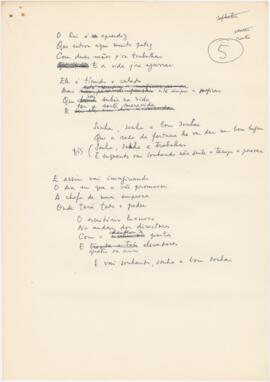 5
O Rui é aprendiz
Que entrou aqui muito feliz
Com duas mãos p'ra trabalhar
E a vida p'ra agarrar
Ele é tímido e calado
Mas
Que vai subir na vida
Sonha, sonha o bom sonhar
Que a roda da fortuna há-de dar um bom lugar
bis (Sonha, sonha e trabalhar
E enquanto vai sonhando não sente o tempo a passar
E assim vai imaginando
O dia em que o vão promover
A chefe de uma empresa
Onde terá todo o poder
O escritório luxuoso
No andar dos directores
Com o porta
E elevadores
E vai sonhando, sonha o bom sonhar